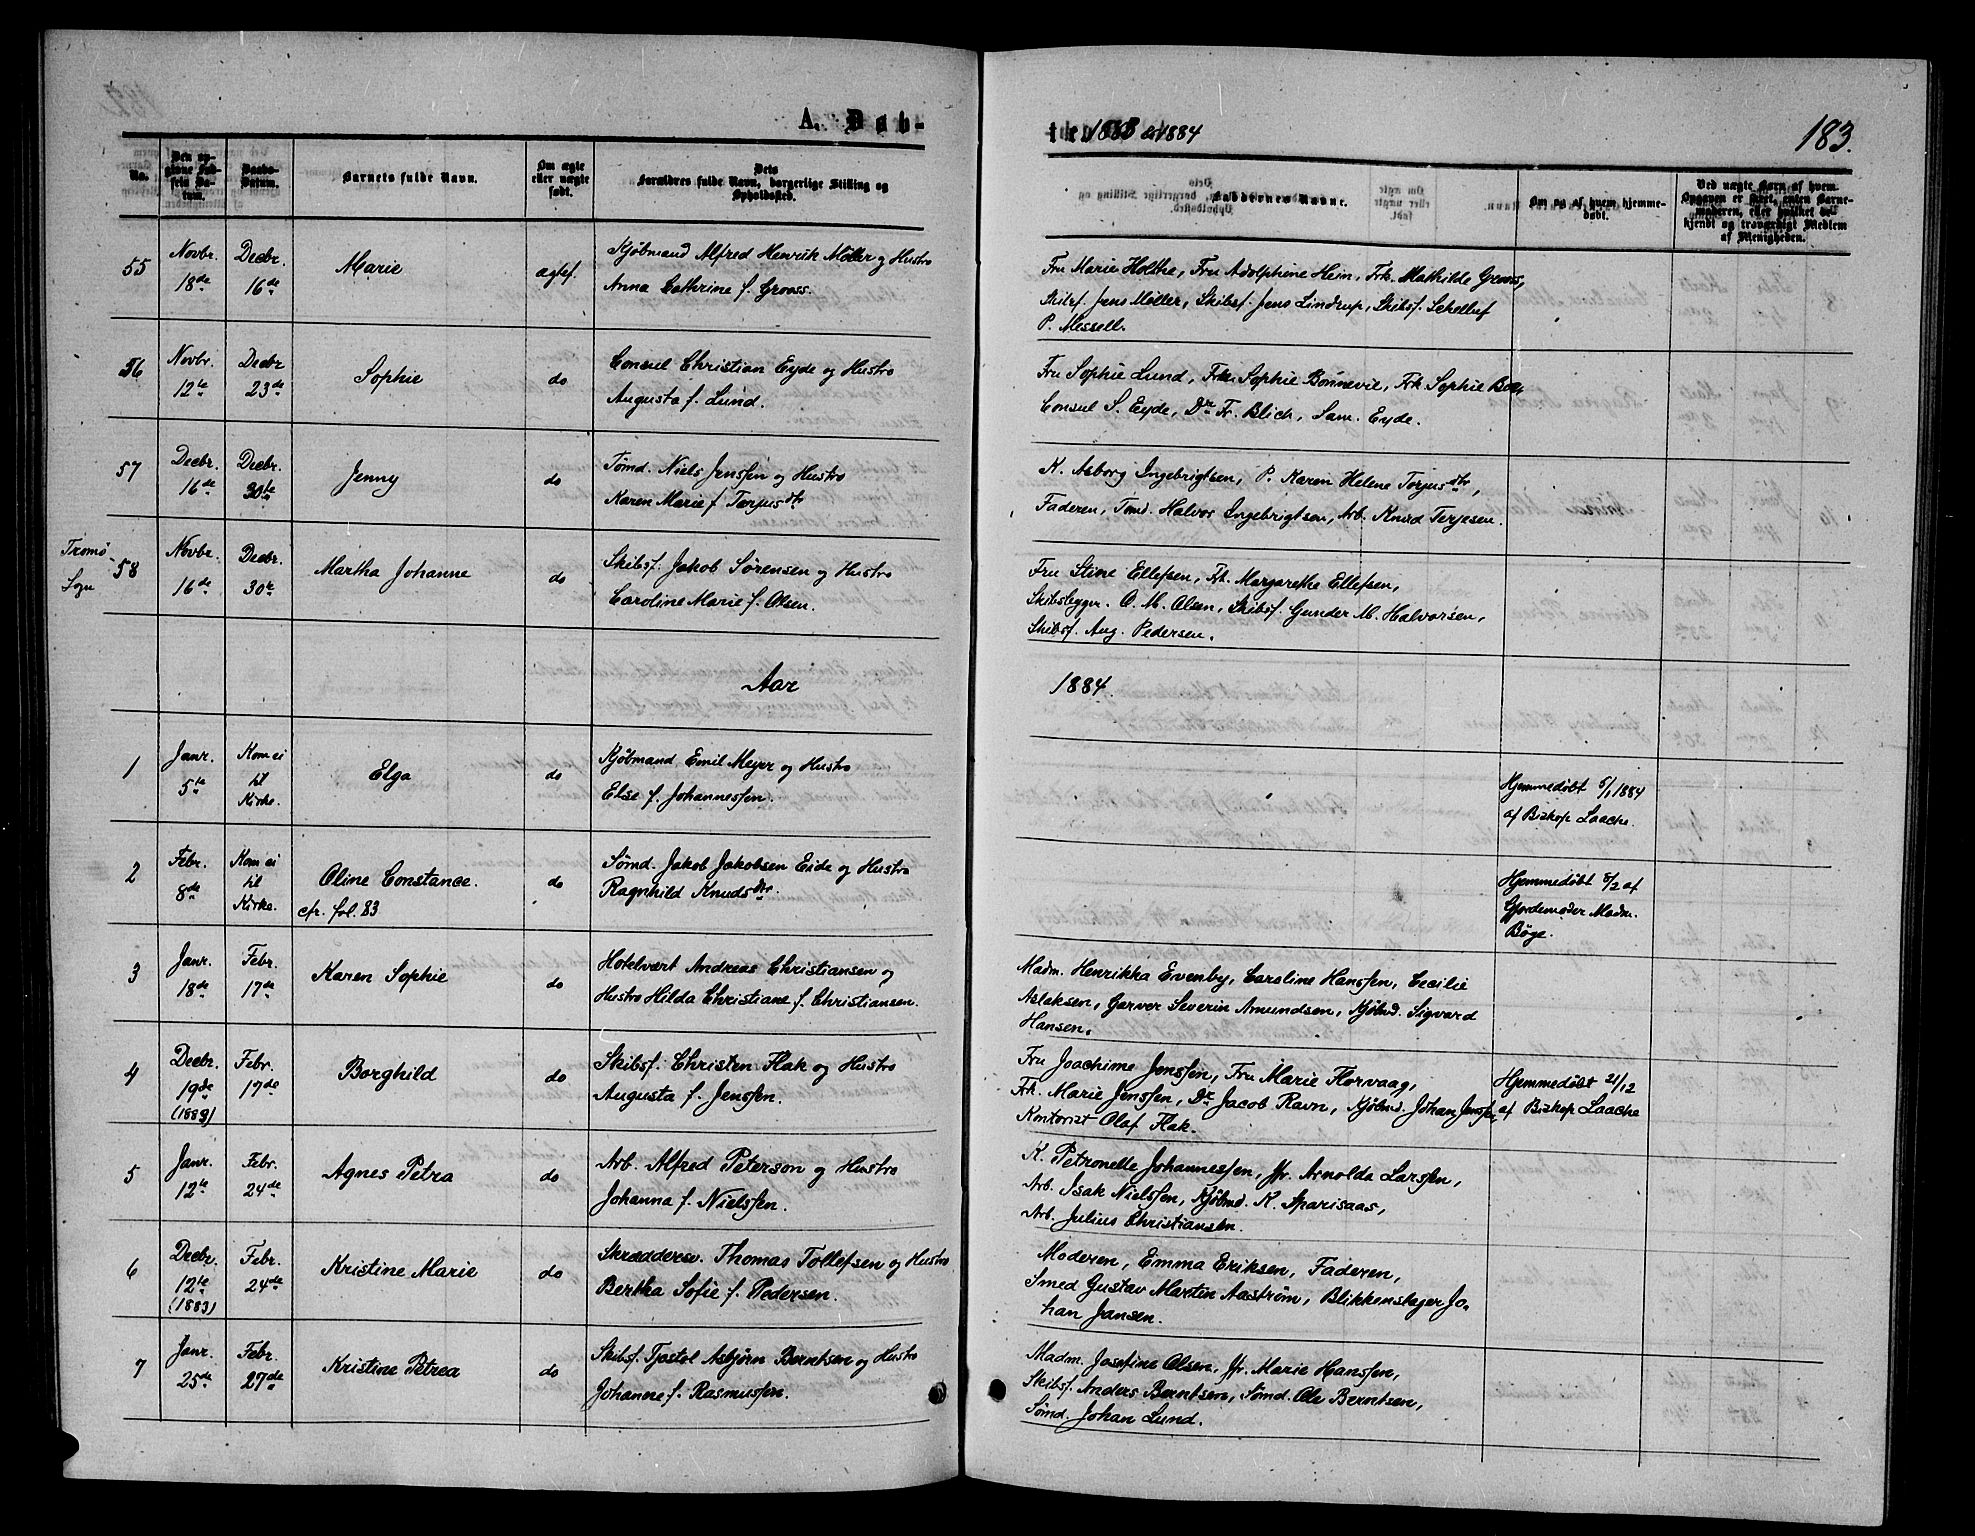 A. Døb-
te 1883 & 1884
183.
No.
Den op-
givne Fød-
sels Da-
tum.
Daabs-
Datum.
Barnets fulde Navn.
Om ægte
eller uægte
født.
Dets
Forældres fulde Navn, borgerlige Stilling og
Opholdssted.
Faddernes Navne.
Om og af hvem hjemme-
døbt.
Ved uægte Børn af hvem
Opgaven er skeet, enten Barne-
moderen, eller hvilket be-
kjendt og troværdigt Medlem
af Menigheden.
55
Novbr.
18de
Decbr.
16de
Marie
ægtef.
Kjøbmand Alfred Henrik Möller og Hustro
Anna Cathrine f. Grooss.
Fru Marie Holthe, Fru Adolphine Hein, Frk. Mathilde Grooss,
Skibsf. Jens Møller, Skibsf. Jens Lindrup, Skibsf.
P. Messell.
56
Novbr.
12te
Decbr
23de
Sophie
do
Consul Christian Eyde og Hustro
Augusta f. Lund.
Fru Sophie Lund, Frk. Sophie Bonnevie, Frk Sophie
Consul S. Eyde, Dr Fr. Blich, Sam. Eyde.
57
Decbr.
16de
Decbr.
30te
Jenny
do
Tømd. Niels Jenssen og Hustro
Karen Marie f Terjusdtr
K. Asborg Ingebrigtsen, P. Karen Helene Torjusdtr,
Faderen, Tømd. Halvor Ingebrigtsen, Arb. Knud Terjesen.
Tromø
Sogn
58
Novbr.
16de
Decbr.
30te
Martha Johanne
do
Skibsf. Jakob Sørensen og Hustro
Caroline Marie f. Olsen.
Fru Stine Ellefsen, Frk. Margarethe Ellefsen,
Skibsbygger. O. M. Olsen, Skibsf. Gunder M. Halvorsen,
Skibsf. Aug. Pedersen.
Aar
1884.
1
Janr.
5te
Kom ei
til
Kirke.
Elga
do
Kjøbmand Emil Meyer og Hustro
Else f. Johannessen.
Hjemmedøbt 5/1 1884
af Biskop Laache.
2
Febr.
8de
Kom ei
til
Kirke.
Oline Constance.
cfr. fol. 83
do
Sømd. Jakob Jakobsen Eide og Hustro
Ragnhild Knudsdtr.
Hjemmedøbt 8/2 af
Gjordemoder Madm.
Bøge.
3
Janr.
18de
Febr.
17de
Karen Sophie
do
Hotelvært Andreas Christiansen og
Hustro Hilda Christiane f. Christiansen.
Madm. Henrikka Evenby, Caroline Hanssen, Cecilie
Aslaksen, Garver Severin Amundsen, Kjøbmd. Sigvard
Hansen.
4
Decbr.
19de
(1883)
Febr.
17de
Borghild
do
Skibsf. Christen Flak og Hustro
Augusta f. Jenssen.
Fru Joachime Jenssen, Fru Marie Florvaag,
Frk. Marie Jenssen, Dr Jacob Ravn, Kjøbmd. Johan Jenssen,
Kontorist Olaf Flak.
Hjemmedøbt 21/12
af Biskop Laache
5
Janr.
12te
Febr.
24de
Agnes Petra
do
Arb. Alfred Peterson og Hustro
Johanna f. Nielssen.
K. Petronelle Johannessen, Jfr. Arnolda Larssen,
Arb. Isak Nielssen, Kjøbmd. K. Aparisaas,
Arb. Julius Christiansen.
6
Decbr.
12te
(1883)
Febr.
24de
Kristine Marie
do
Skræddersv. Thomas Tollefsen og Hustro
Bertha Sofie f. Pedersen.
Moderen, Emma Eriksen, Faderen,
Smed Gustav Martin Aastrøm, Blikkenslager Jo-
han Jansen.
7
Janr.
25de
Febr.
27de
Kristine Petrea
do
Skibsf. Tjøstol Asbjørn Berntsen og Hustro
Johanne f. Rasmussen.
Madm. Josefine Olsen, Jfr. Marie Hanssen,
Skibsf. Anders Berntsen, Sømd. Ole Berntsen,
Sømd. Johan Lund.